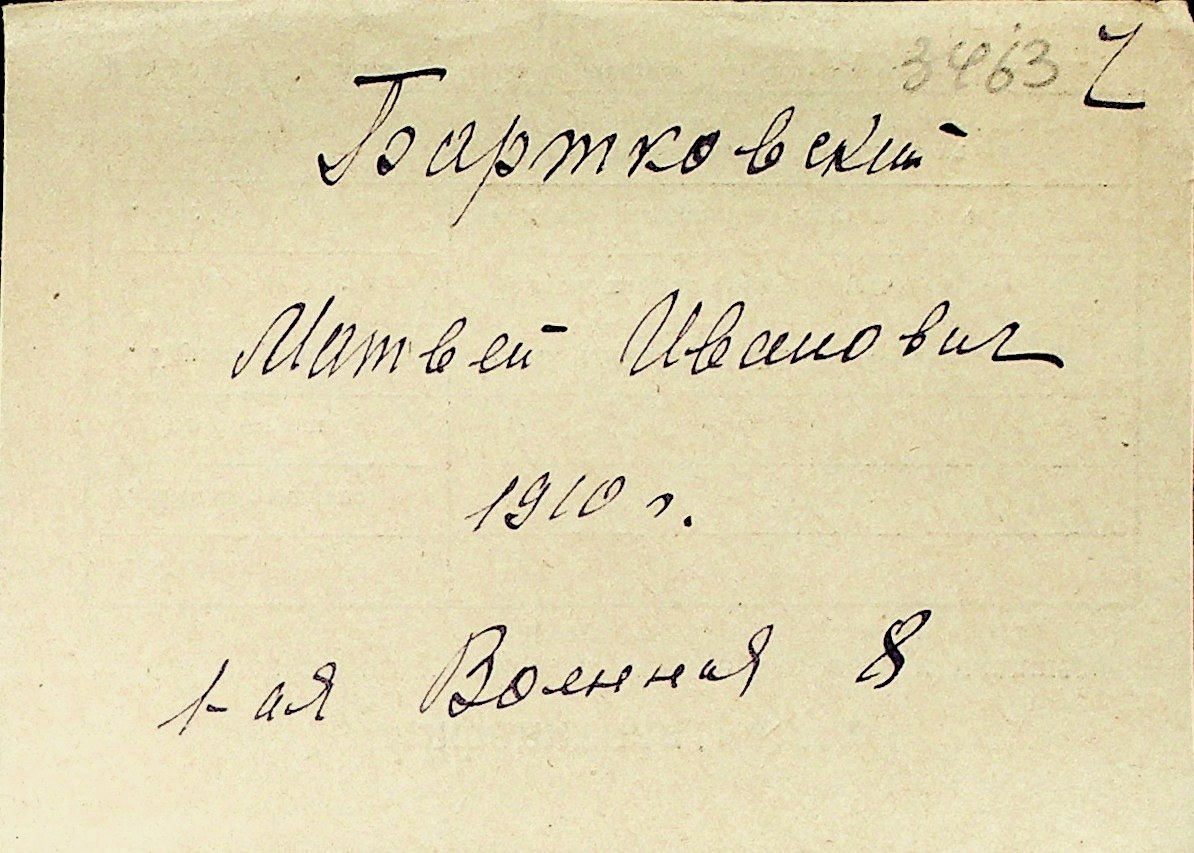 3463 7
Бартковский
Матвей Иванович
1910 г.
1-ая Военная 8